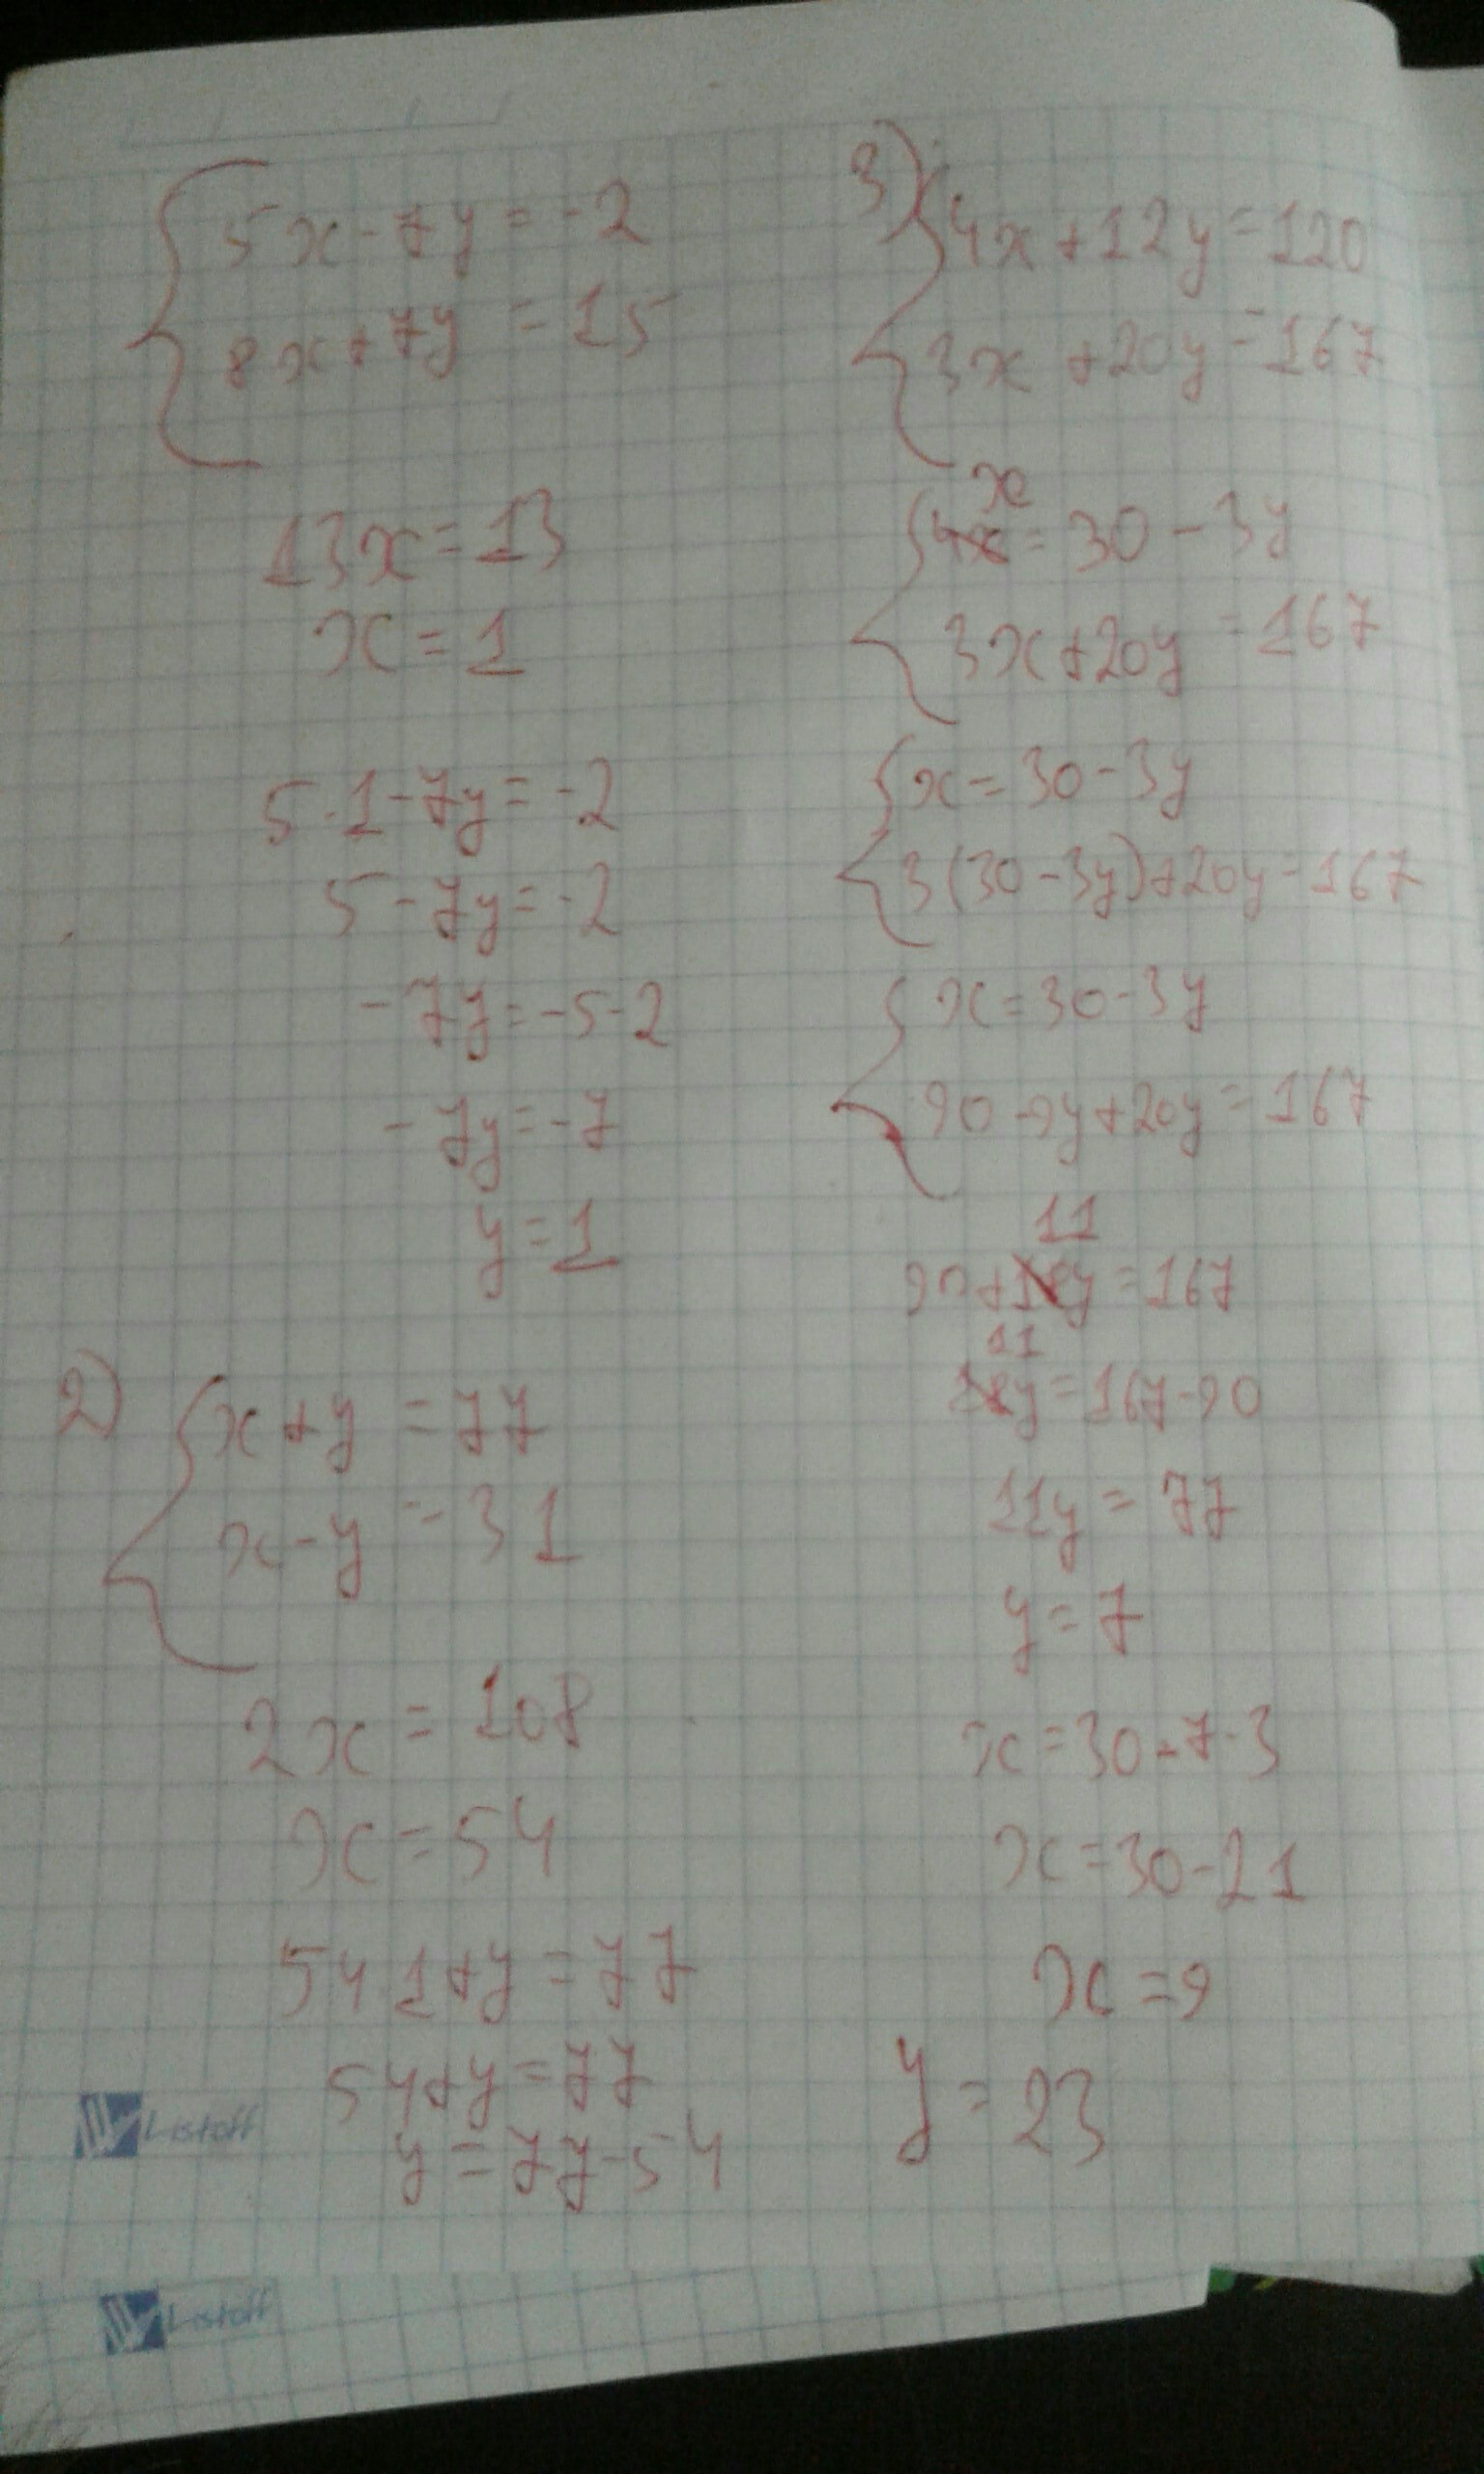 5x-7y=-2
8x+7y=15
13x=13
x=1
5·1-7y=-2
5-7y=-2
-7y=-5-2
-7y=-7
y=1
2)
x+y=77
x-y=31
2x=108
x=54
54·1+y=77
54+y=77
y=77-54
3)
4x+12y=120
3x+20y=167
x
=30-3y
3x+20y=167
x=30-3y
3(30-3y)+20y=167
x=30-3y
90-9y+20y=167
11
90+18y=167
11
18y=167-90
11y=77
y=7
x=30-7·3
x=30-21
x=9
y=23
Listoff
Listoff